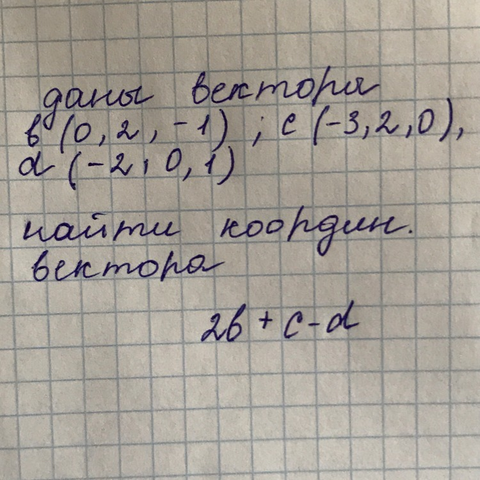 даны вектора
в (0, 2, -1) ; с (-3, 2, 0),
d (-2, 0, 1)
найти координ.
вектора
2в + с - d